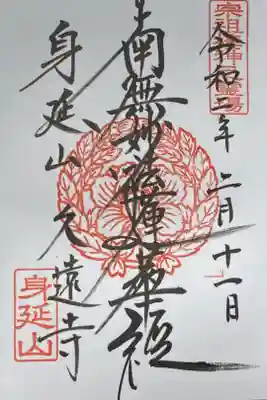 令和三年 二月十一日
南無妙法蓮華経
身延山久遠寺
身延山